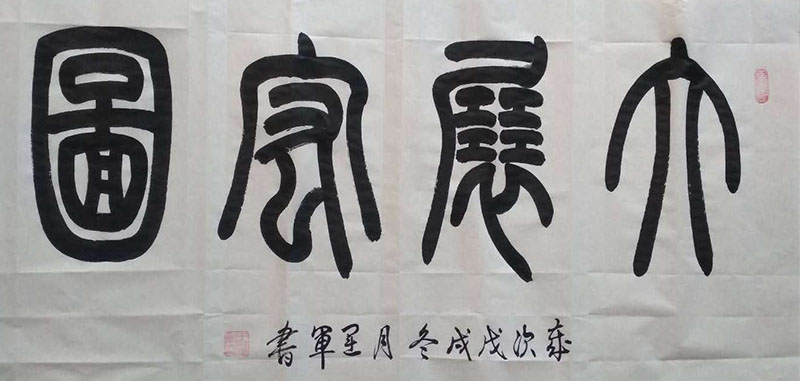 大展宏圖
歲次戊戌冬月軍書